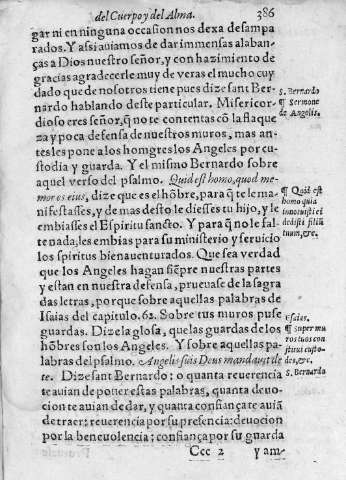 del Cuerpo y del Alma.
386
gar ni en ninguna occasion nos dexa desampa
rados. Y assi auiamos de dar immensas alaban-
ças a Dios nuestro señor, y con hazimiento de
gracias agradecerle muy de veras el mucho cuy
dado que de nosotros tiene pues dize sant Ber-
nardo hablando deste particular. Misericor-
dioso eres señor, q̃ no te contentas cõ la flaque
za y poca defensa de nuestros muros, mas an-
tes les pone a los homgres los Angeles por cu-
stodia y guarda. Y el mismo Bernardo sobre
aquel verso del psalmo. Quid est homo, quod me-
mor es eius, dize que es el hõbre, para q̃ te le ma-
nifestasses, y de mas desto le diesses tu hijo, y le
embiasses el Espiritu sancto. Y para q̃ no le fal-
te nada, les embias para su ministerio y seruicio
los spiritus bienauenturados. Que sea verdad
que los Angeles hagan siẽpre nuestras partes
y estan en nuestra defensa, prueuase de la sagra
das letras, porque sobre aquellas palabras de
Isaias del capitulo. 62. Sobre tus muros puse
guardas. Dize la glosa, que las guardas de los
hõbres son los Angeles. Y sobre aquellas pa-
labras del psalmo. Angelis suis Deus mandauit de
te. Dize sant Bernardo: o quanta reuerencia
te auian de poner estas palabras, quanta deuo-
cion te auian de dar, y quanta confiança te auiã
de traer: reuerencia por su presencia: deuocion
por la beneuolencia; confiança por su guarda
Ccc 2
y am-
S. Bernardo
¶ Sermone
de Angelis.
¶ Quid est
homo quia
innotuisti ei
dedisti filiũ
tuum, &c.
Esaias.
¶ Super mu
ros tuos con
stitui custo-
des, &c.
S. Bernardo